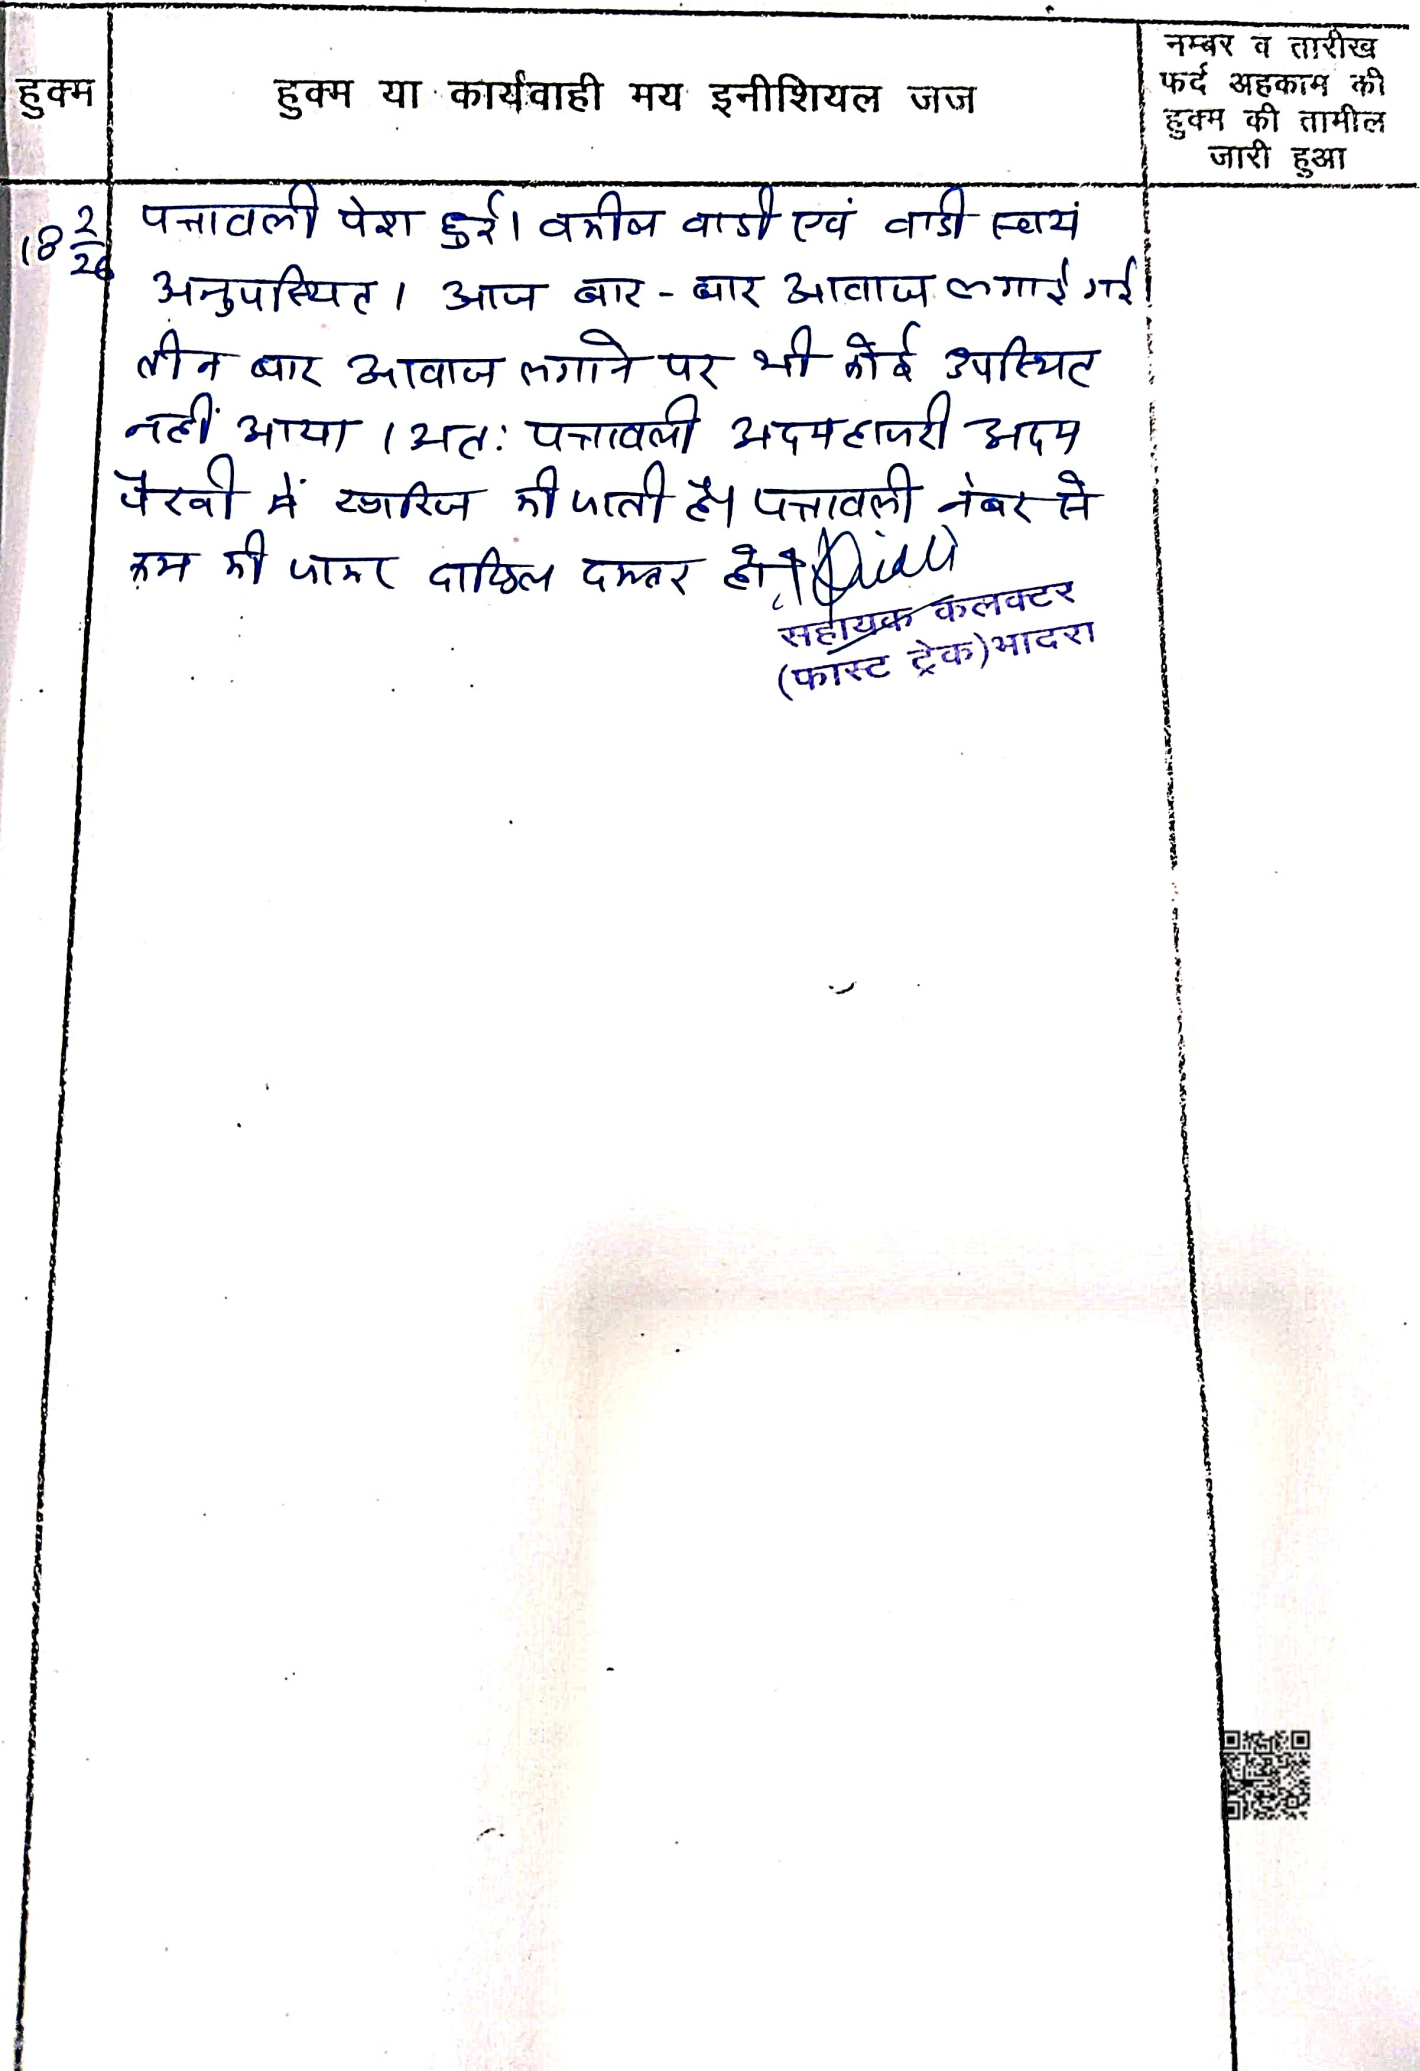 हुक्म
हुक्म या कार्यवाही मय इनीशियल जज
नम्बर व तारीख
फर्द अहकाम की
हुक्म की तामील
जारी हुआ
18 2/26
पत्रावली पेश हुई। वकील वादी एवं वादी स्वयं
अनुपस्थित। आज बार-बार आवाज लगाई गई।
तीन बार आवाज लगाने पर भी कोई उपस्थित
नहीं आया। अत: पत्रावली अदमहाजरी अदम
पैरवी में खारिज की जाती है। पत्रावली नंबर से
कम की जाकर दाखिल दफ्तर हो।
सहायक कलक्टर
(फास्ट ट्रेक) भादरा